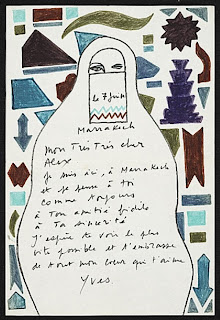 le 7 juin
Marrakech
mon Très Très cher
Alex
je suis ici, à Marrakech
et je pense à toi
comme toujours
à Ton amitié fidèle
à Ta sincérité
j'espère te voir le plus
vite possible et t'embrasse
de tout mon cœur qui t'aime
Yves.